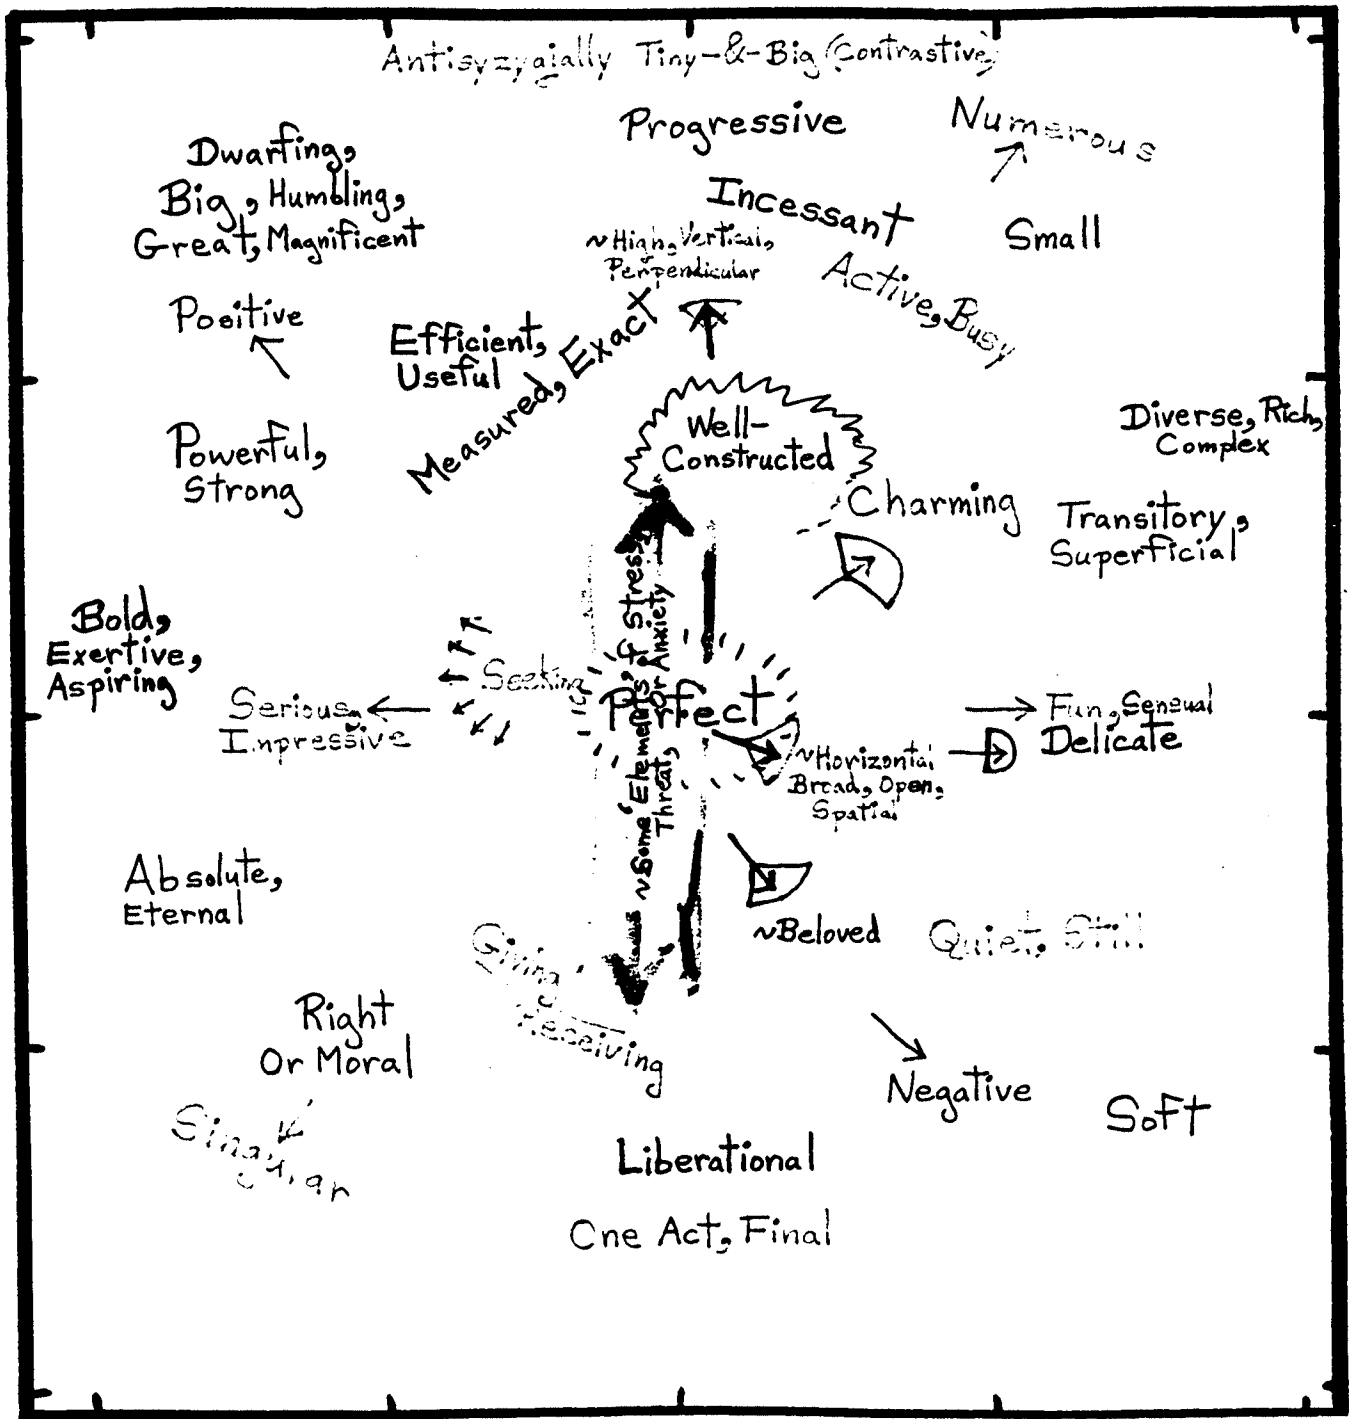 Antisyzygially Tiny-&-Big (Contrastive)
Progressive
Numerous
Dwarfing,
Big, Humbling,
Great, Magnificent
Incessant
Small
~High, Vertical,
Perpendicular
Active, Busy
Positive
Efficient,
Useful
Measured, Exact
Well-
Constructed
Diverse, Rich,
Complex
Powerful,
Strong
Charming
Transitory,
Superficial
Bold,
Exertive,
Aspiring
Seeking
Perfect
~Some Elements of Stress,
Threat, Or Anxiety
Serious,
Impressive
Fun, Sensual
Delicate
~Horizontal
Broad, Open,
Spatial
Absolute,
Eternal
~Beloved
Quiet, Still
Giving
Receiving
Right
Or Moral
Negative
Soft
Singular
Liberational
One Act, Final